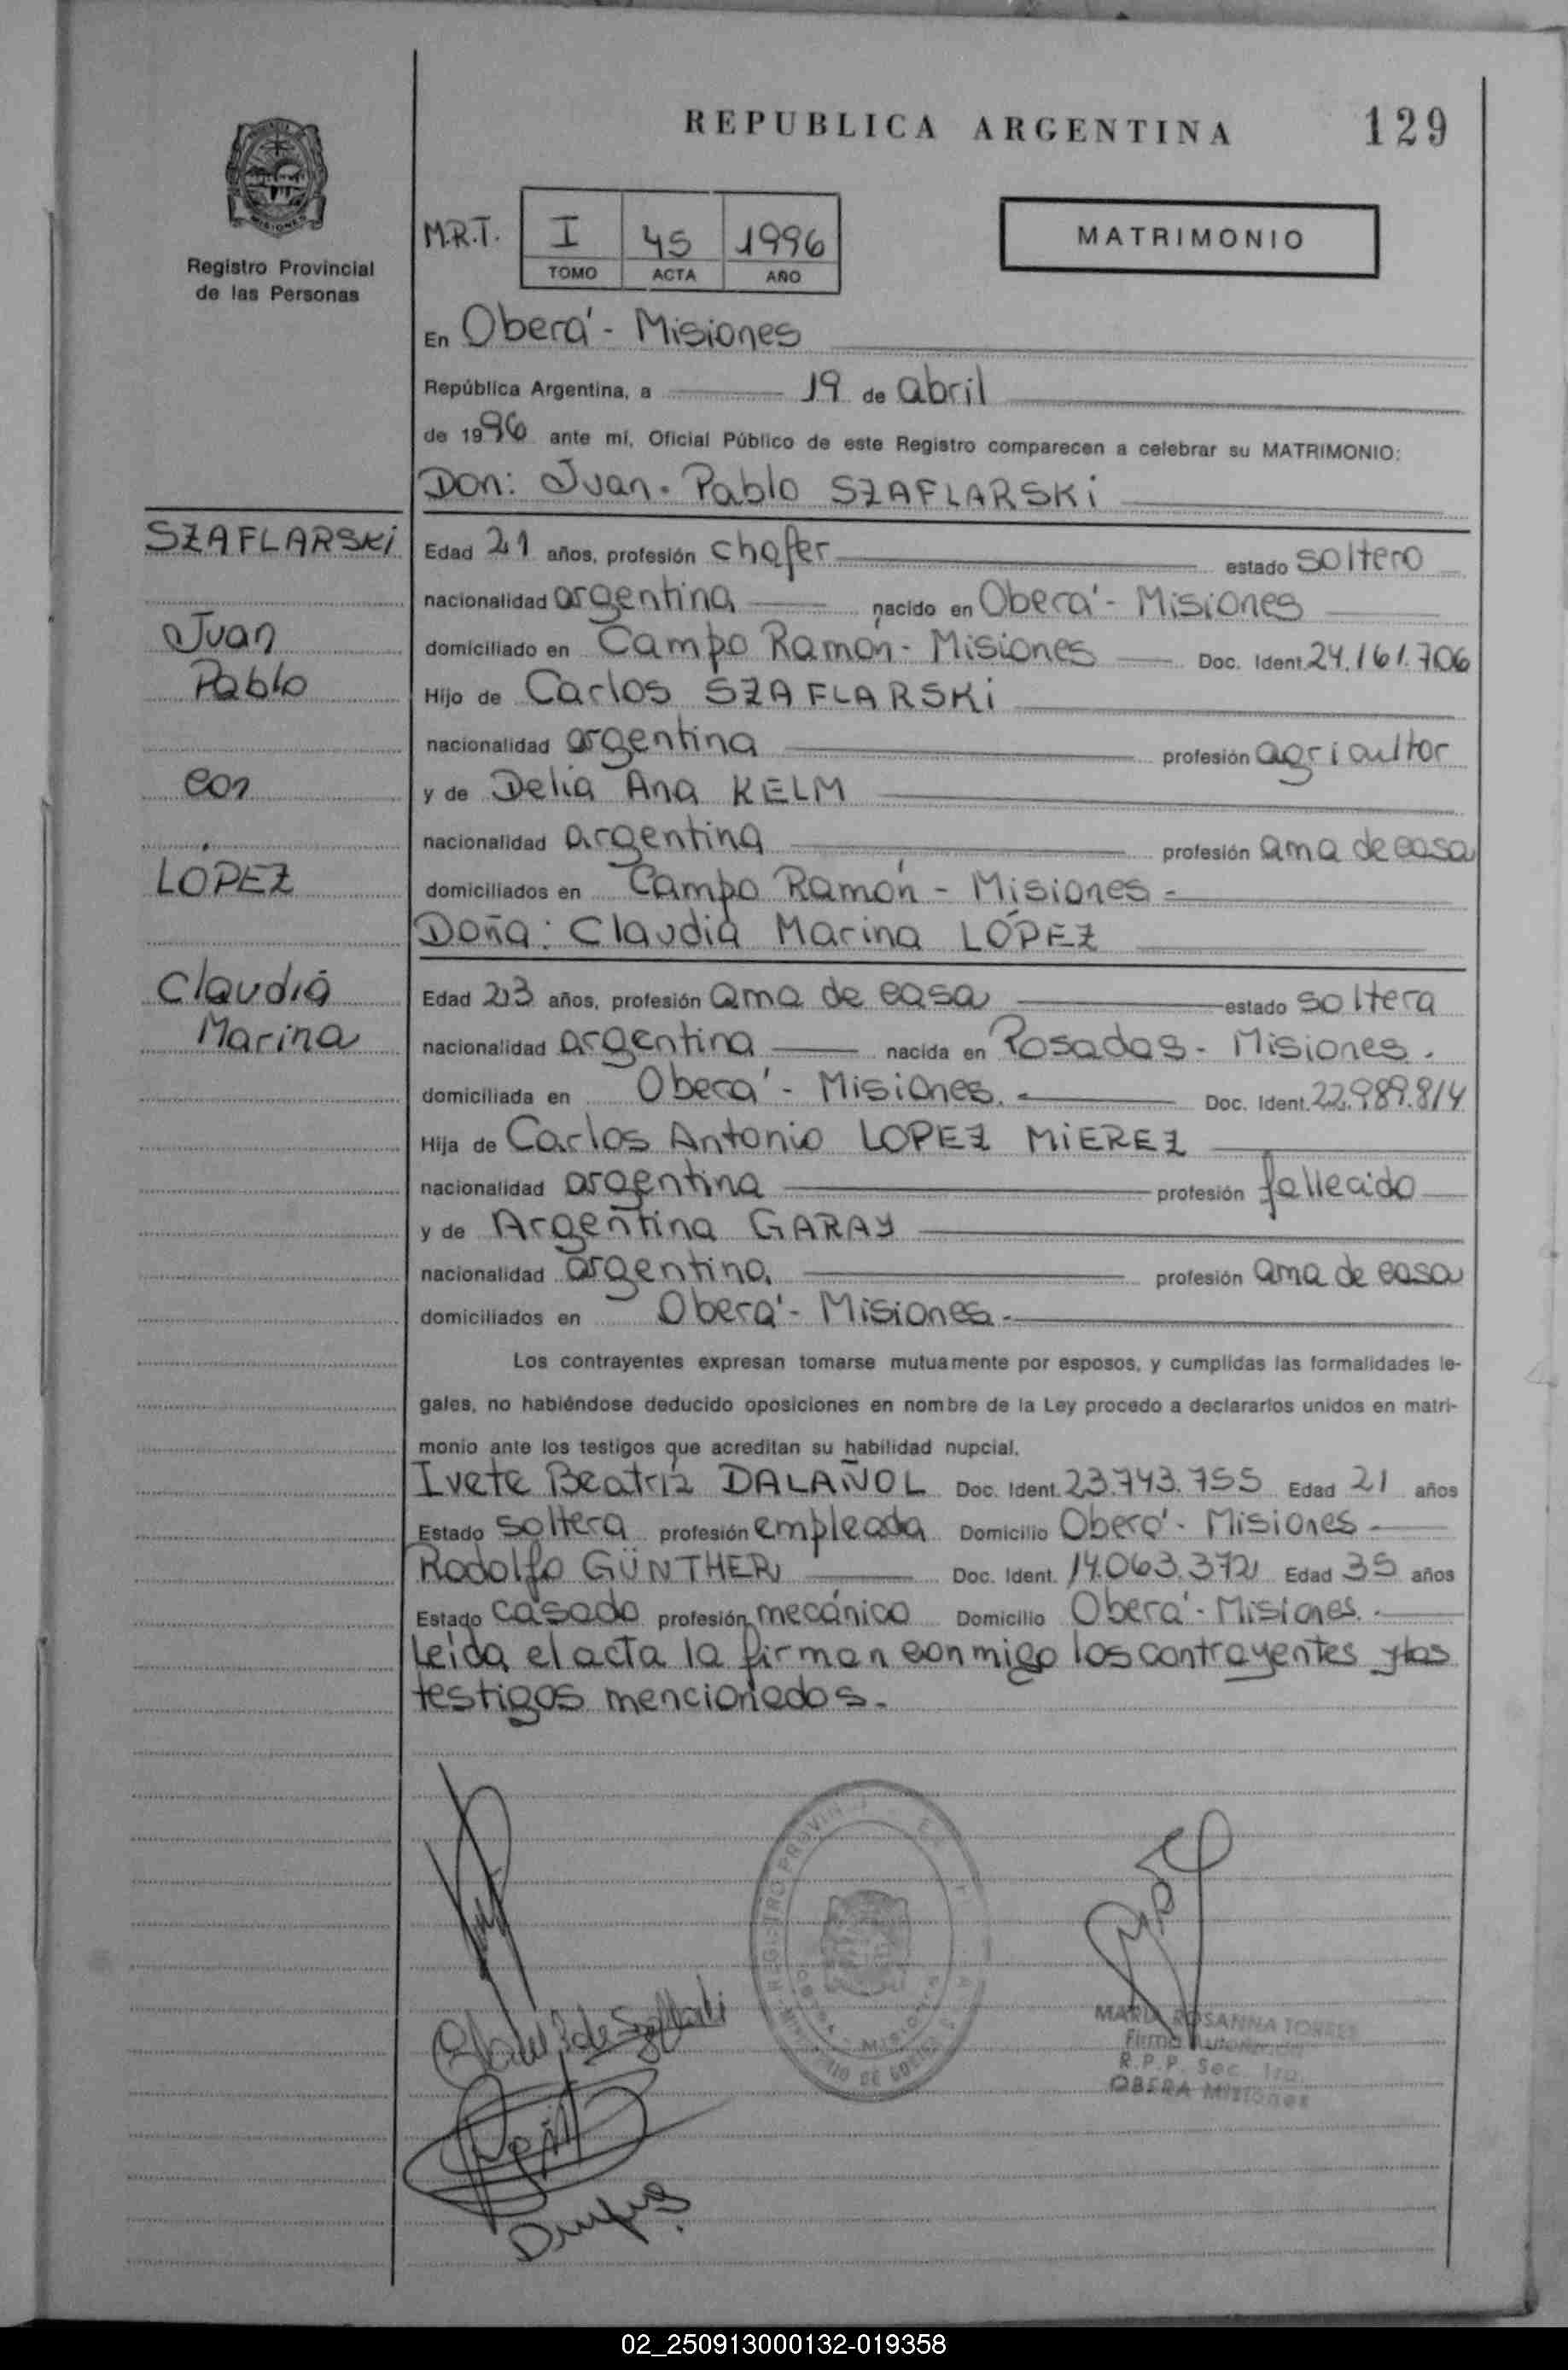 REPUBLICA ARGENTINA 129
Registro Provincial
de las Personas
M.R.T. I 45 1996
TOMO ACTA AÑO
MATRIMONIO
En Oberá - Misiones
República Argentina, a 19 de abril
de 1996 ante mí, Oficial Público de este Registro comparecen a celebrar su MATRIMONIO:
Don: Juan Pablo SZAFLARSKi
SZAFLARSKi
Juan
Pablo
con
LÓPEZ
Claudia
Marina
Edad 21 años, profesión chofer estado soltero
nacionalidad argentina nacido en Oberá - Misiones
domiciliado en Campo Ramón - Misiones Doc. Ident. 24.161.706
Hijo de Carlos SZAFLARSKi
nacionalidad argentina profesión agricultor
y de Delia Ana KELM
nacionalidad argentina profesión ama de casa
domiciliados en Campo Ramón - Misiones -
Doña: Claudia Marina LÓPEZ
Edad 23 años, profesión ama de casa estado soltera
nacionalidad argentina nacida en Posadas - Misiones.
domiciliada en Oberá - Misiones. Doc. Ident. 22.989.814
Hija de Carlos Antonio LOPEZ MiEREZ
nacionalidad argentina profesión fallecido
y de Argentina GARAY
nacionalidad argentina profesión ama de casa
domiciliados en Oberá - Misiones -
Los contrayentes expresan tomarse mutuamente por esposos, y cumplidas las formalidades le-
gales, no habiéndose deducido oposiciones en nombre de la Ley procedo a declararlos unidos en matri-
monio ante los testigos que acreditan su habilidad nupcial.
Ivete Beatriz DALAÑOL Doc. Ident. 23.743.755 Edad 21 años
Estado soltera profesión empleada Domicilio Oberá - Misiones
Rodolfo GÜNTHER Doc. Ident. 14.063.372 Edad 35 años
Estado casado profesión mecánico Domicilio Oberá - Misiones.
Leída el acta la firman conmigo los contrayentes y los
testigos mencionados.
ROSANNA TORRES
Firma
R.P.P. Sec. 1ra.
OBERA Misiones
02_250913000132-019358